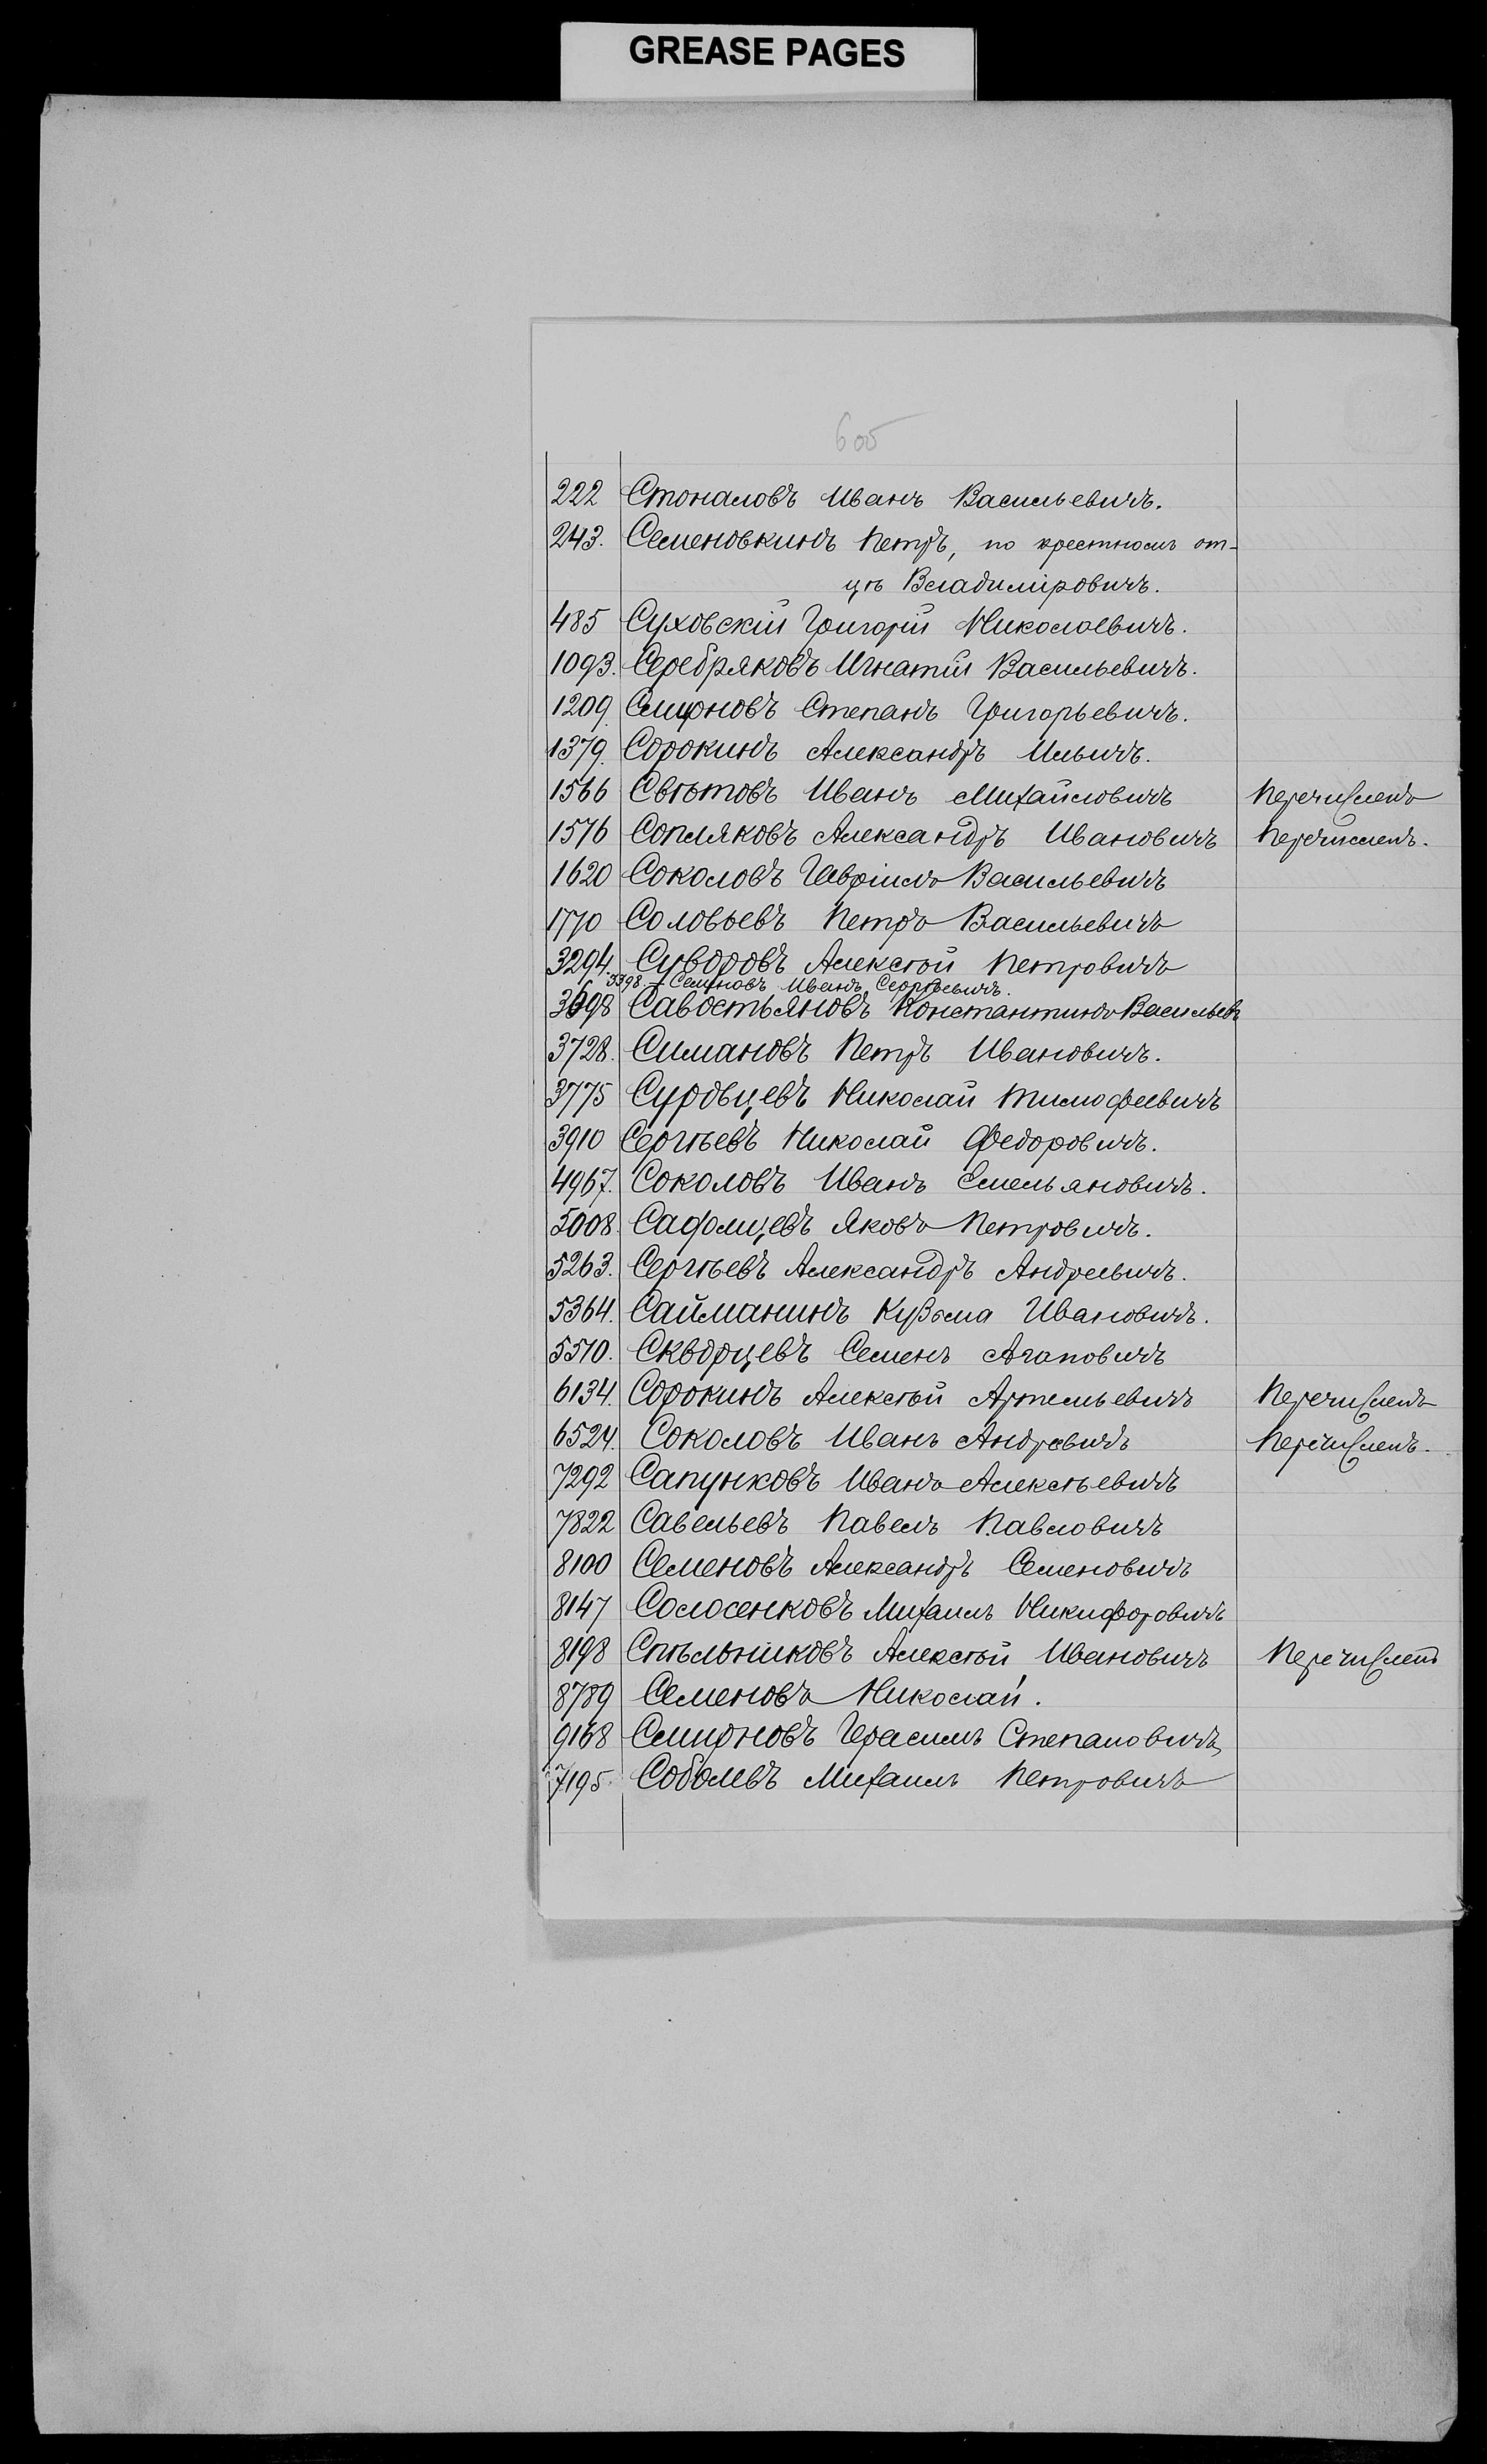 GREASE PAGES
605
222 Стоналовъ Иванъ Васильевичъ.
243. Семеновкинъ Петръ, по крестномъ от-
цѣ Владимiровичъ.
485 Суховскiй Григорiй Николаевичъ.
1093. Серебряковъ Игнатiй Васильевичъ.
1209. Смирновъ Степанъ Григорьевичъ.
1379. Сорокинъ Александръ Ильичъ.
1566 Свѣтовъ Иванъ Михайловичъ Перечисленъ
1576 Сопляковъ Александръ Ивановичъ Перечисленъ.
1620 Соколовъ Гаврiилъ Васильевичъ
1770 Соловьевъ Петръ Васильевичъ
3294. Суворовъ Алексѣй Петровичъ
3398 – Семеновъ Иванъ Сергѣевичъ.
3698 Савостьяновъ Константинъ Васильевъ
3728. Симановъ Петръ Ивановичъ.
3775 Суровцевъ Николай Тимофеевичъ
3910 Сергѣевъ Николай Федоровичъ.
4967. Соколовъ Иванъ Емельяновичъ.
5008. Сафомцевъ Яковъ Петровичъ.
5263. Сергѣевъ Александръ Андреевичъ.
5364. Сайманинъ Кузьма Ивановичъ.
5510. Скворцевъ Семенъ Агаповичъ
6134. Сорокинъ Алексѣй Артемьевичъ Перечисленъ
6524. Соколовъ Иванъ Андреевичъ Перечисленъ.
7292 Сапунковъ Иванъ Алексѣевичъ
7822 Савельевъ Павелъ Павловичъ
8100 Семеновъ Александръ Семеновичъ
8147 Солосенковъ Михаилъ Никифоровичъ
8198 Стѣльниковъ Алексѣй Ивановичъ Перечисленъ
8789 Семеновъ Николай.
9168 Смирновъ Герасимъ Степановичъ
7195. Соболевъ Михаилъ Петровичъ